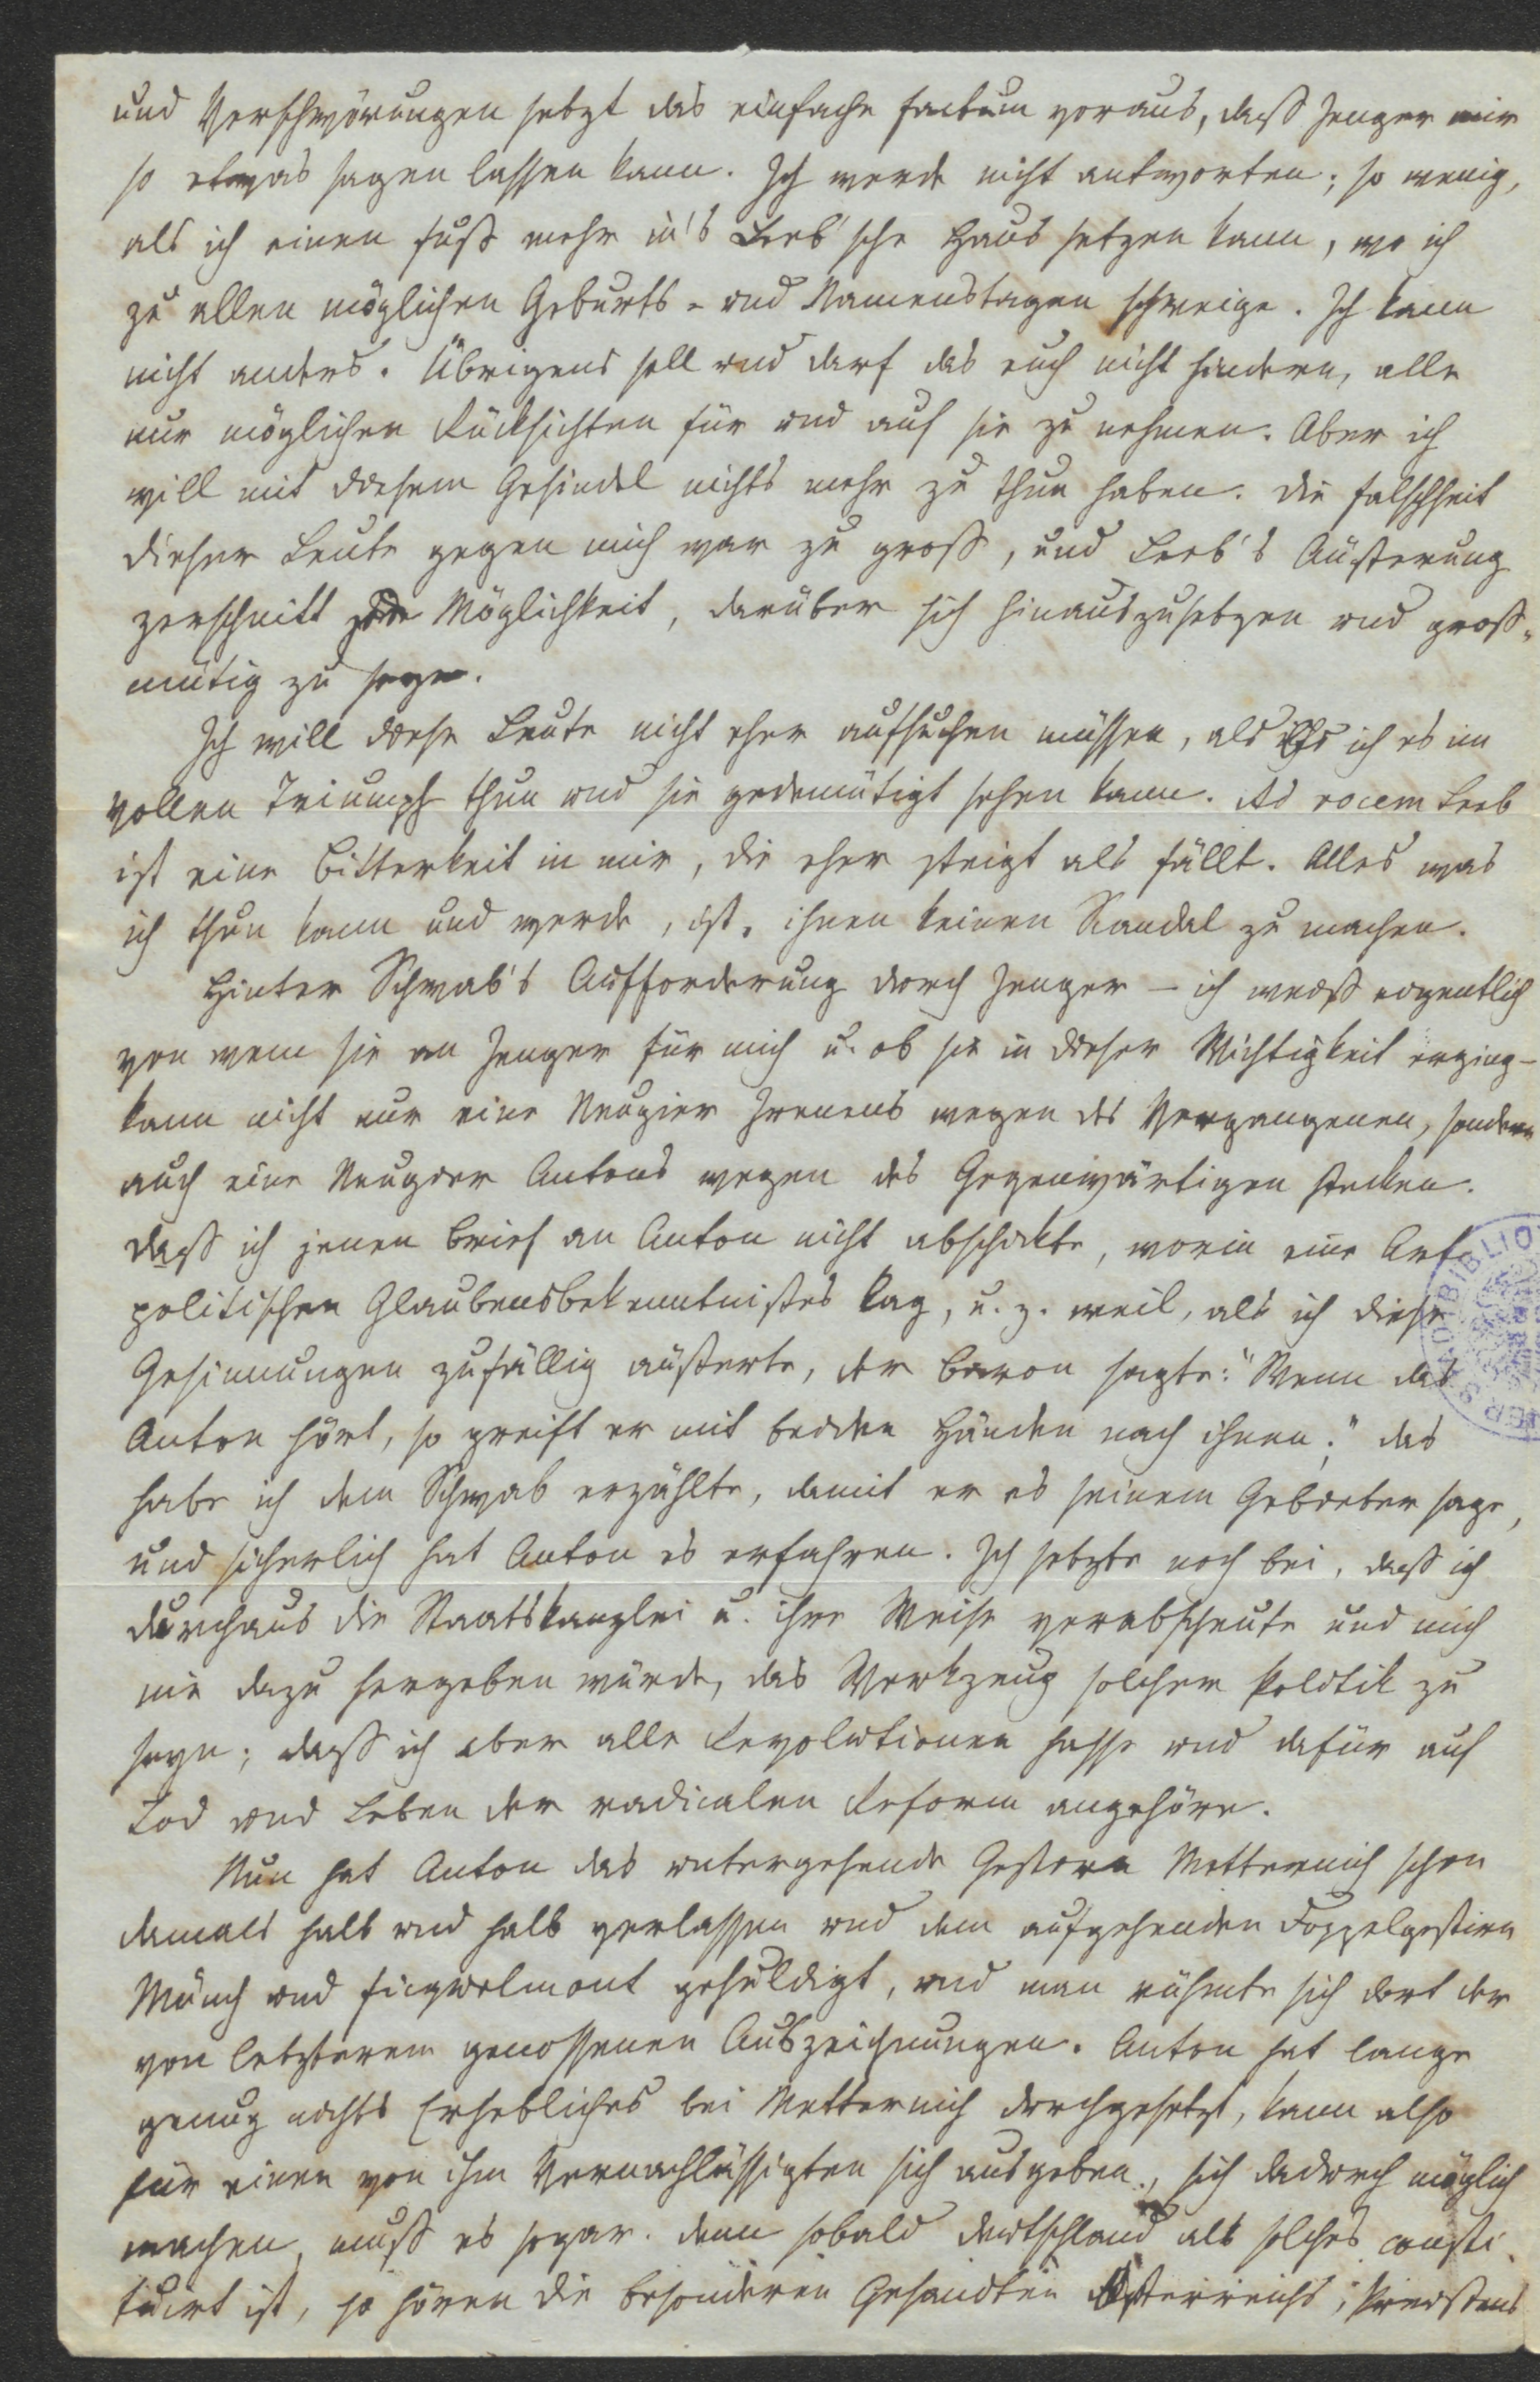 und Verschwörungen setzt das einfache Factum voraus, daß Zenger mir
so etwas sagen lassen kann. Ich werde nicht antworten; so wenig,
als ich einen Fuß mehr in's Leeb'sche Haus setzen kann, wo ich
zu allen möglichen Geburts- und Namenstagen schweige. Ich kann
nicht anders. Übrigens soll und darf das euch nicht hindern, alle
nur möglichen Rücksichten für und auf sie zu nehmen. Aber ich
will mit diesem Gesindel nichts mehr zu thun haben. Die Falschheit
dieser Leute gegen mich war zu groß, und Leeb's Äußerung
zerschnitt jede Möglichkeit, darüber sich hinauszusetzen und groß-
mütig zu seyn.
Ich will diese Leute nicht eher aufsuchen müssen, als bis ich es im
vollen Triumph thun und sie gedemütigt sehen kann. Ad vocem Leeb
ist eine Bitterkeit in mir, die eher steigt als fällt. Alles was
ich thun kann und werde, ist, ihnen keinen Skandal zu machen.
Hinter Schwab's Aufforderung durch Zenger – ich weiß eigentlich
von wem sie an Zenger für mich u. ob sie in dieser Wichtigkeit erging –
kann nicht nur eine Neugier Irenens wegen des Vergangenen, sondern
auch eine Neugier Antons wegen des Gegenwärtigen stecken.
Daß ich jenen Brief an Anton nicht abschickte, worin eine Art
politischen Glaubensbekenntnißes lag, u. z. weil, als ich diese
Gesinnungen zufällig äußerte, der Baron sagte: "Wenn das
Anton hört, so greift er mit beiden Händen nach ihnen;" das
habe ich dem Schwab erzählte, damit er es seinem Gebieter sage,
und sicherlich hat Anton es erfahren. Ich setzte noch bei, daß ich
durchaus die Staatskanzlei u. ihre Weise verabscheute und mich
nie dazu hergeben würde, das Werkzeug solcher Politik zu
seyn; daß ich aber alle Revolutionen hasse und dafür auf
Tod und Leben der radicalen Reform angehöre.
Nun hat Anton das untergehende Gestirn Metternich schon
damals halb und halb verlassen und dem aufgehenden Doppelgestirn
Münch und Ficquelmont gehuldigt, und man rühmte sich dort der
von letzterem genossenen Auszeichnungen. Anton hat lange
genug nichts Erhebliches bei Metternich durchgesetzt, kann also
für einen von ihm Vernachlässigten sich ausgeben, sich dadurch möglich
machen, muß es sogar. Denn sobald Deutschland als solches consti-
tuirt ist, so hören die besonderen Gesandten Österreichs, Preußens